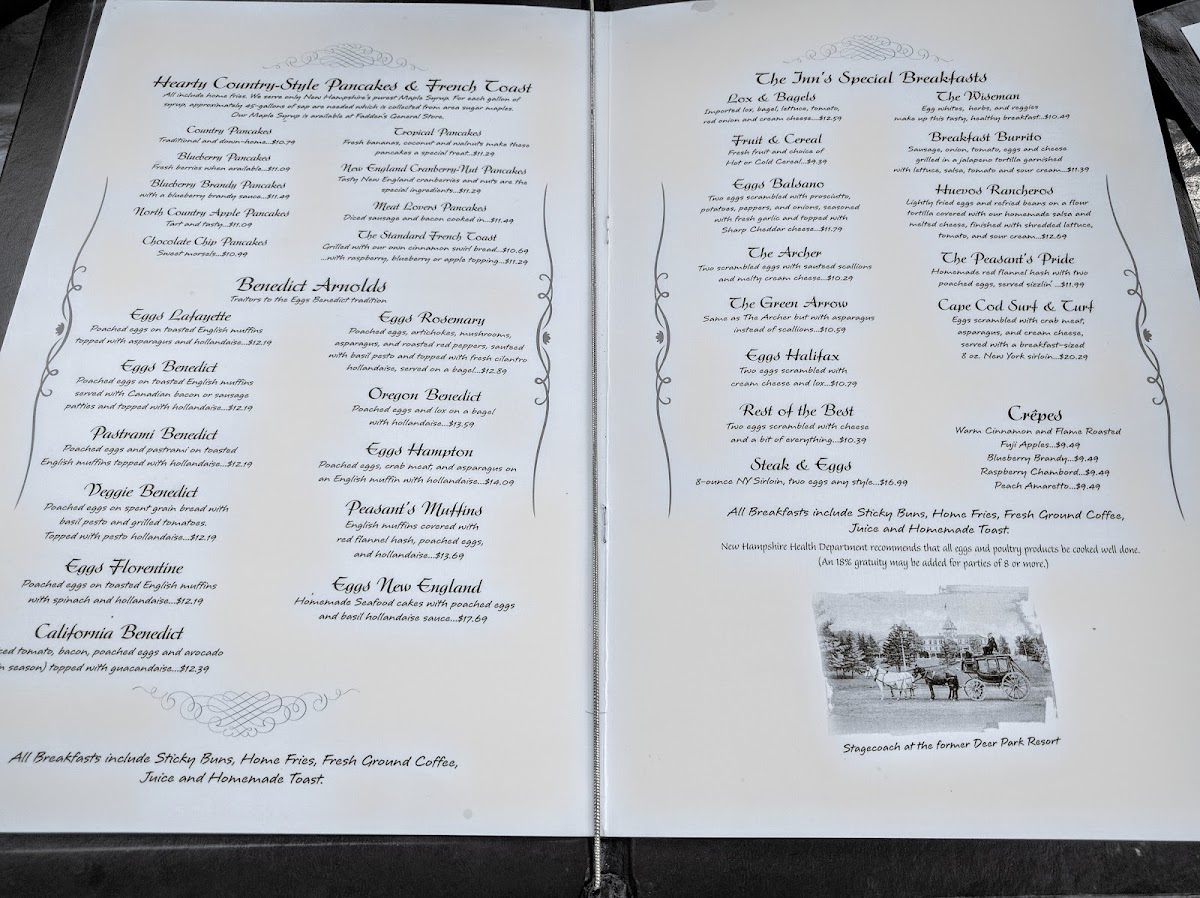 Hearty Country-Style Pancakes & French Toast
All include home fries. We serve only New Hampshire's purest Maple Syrup. For each gallon of
syrup, approximately 45-gallons of sap are needed which is collected from area sugar maples.
Our Maple Syrup is available at Fadden's General Store.
Country Pancakes
Traditional and down-home...$10.79
Blueberry Pancakes
Fresh berries when available...$11.09
Blueberry Brandy Pancakes
with a blueberry brandy sauce...$11.49
North Country Apple Pancakes
Tart and tasty...$11.09
Chocolate Chip Pancakes
Sweet morsels...$10.99
Tropical Pancakes
Fresh bananas, coconut and walnuts make these
pancakes a special treat...$11.29
New England Cranberry-Nut Pancakes
Tasty New England cranberries and nuts are the
special ingredients...$11.29
Meat Lovers Pancakes
Diced sausage and bacon cooked in...$11.49
The Standard French Toast
Grilled with our own cinnamon swirl bread...$10.69
...with raspberry, blueberry or apple topping...$11.29
Benedict Arnolds
Traitors to the Eggs Benedict tradition
Eggs Lafayette
Poached eggs on toasted English muffins
topped with asparagus and hollandaise...$12.19
Eggs Benedict
Poached eggs on toasted English muffins
served with Canadian bacon or sausage
patties and topped with hollandaise...$12.19
Pastrami Benedict
Poached eggs and pastrami on toasted
English muffins topped with hollandaise...$12.19
Veggie Benedict
Poached eggs on spent grain bread with
basil pesto and grilled tomatoes.
Topped with pesto hollandaise...$12.19
Eggs Florentine
Poached eggs on toasted English muffins
with spinach and hollandaise...$12.19
California Benedict
tomato, bacon, poached eggs and avocado
season) topped with guacandaise...$12.39
Eggs Rosemary
Poached eggs, artichokes, mushrooms,
asparagus, and roasted red peppers, sauteed
with basil pesto and topped with fresh cilantro
hollandaise, served on a bagel...$12.89
Oregon Benedict
Poached eggs and lox on a bagel
with hollandaise...$13.59
Eggs Hampton
Poached eggs, crab meat, and asparagus on
an English muffin with hollandaise...$14.09
Peasant's Muffins
English muffins covered with
red flannel hash, poached eggs,
and hollandaise...$13.69
Eggs New England
Homemade Seafood cakes with poached eggs
and basil hollandaise sauce...$17.69
All Breakfasts include Sticky Buns, Home Fries, Fresh Ground Coffee,
Juice and Homemade Toast.
The Inn's Special Breakfasts
Lox & Bagels
Imported lox, bagel, lettuce, tomato,
red onion and cream cheese...$12.59
Fruit & Cereal
Fresh fruit and choice of
Hot or Cold Cereal...$9.39
Eggs Balsano
Two eggs scrambled with prosciutto,
potatoes, peppers, and onions, seasoned
with fresh garlic and topped with
Sharp Cheddar cheese...$11.79
The Archer
Two scrambled eggs with sauteed scallions
and melty cream cheese...$10.29
The Green Arrow
Same as The Archer but with asparagus
instead of scallions...$10.59
Eggs Halifax
Two eggs scrambled with
cream cheese and lox...$10.79
Rest of the Best
Two eggs scrambled with cheese
and a bit of everything...$10.39
Steak & Eggs
8-ounce NY Sirloin, two eggs any style...$16.99
The Wiseman
Egg whites, herbs, and veggies
make up this tasty, healthy breakfast...$10.49
Breakfast Burrito
Sausage, onion, tomato, eggs and cheese
grilled in a jalapeno tortilla garnished
with lettuce, salsa, tomato and sour cream...$11.39
Huevos Rancheros
Lightly fried eggs and refried beans on a flour
tortilla covered with our homemade salsa and
melted cheese, finished with shredded lettuce,
tomato, and sour cream...$12.69
The Peasant's Pride
Homemade red flannel hash with two
poached eggs, served sizzlin' ...$11.99
Cape Cod Surf & Turf
Eggs scrambled with crab meat,
asparagus, and cream cheese,
served with a breakfast-sized
8 oz. New York sirloin...$20.29
Crêpes
Warm Cinnamon and Flame Roasted
Fuji Apples...$9.49
Blueberry Brandy...$9.49
Raspberry Chambord...$9.49
Peach Amaretto...$9.49
All Breakfasts include Sticky Buns, Home Fries, Fresh Ground Coffee,
Juice and Homemade Toast.
New Hampshire Health Department recommends that all eggs and poultry products be cooked well done.
(An 18% gratuity may be added for parties of 8 or more.)
Stagecoach at the former Deer Park Resort